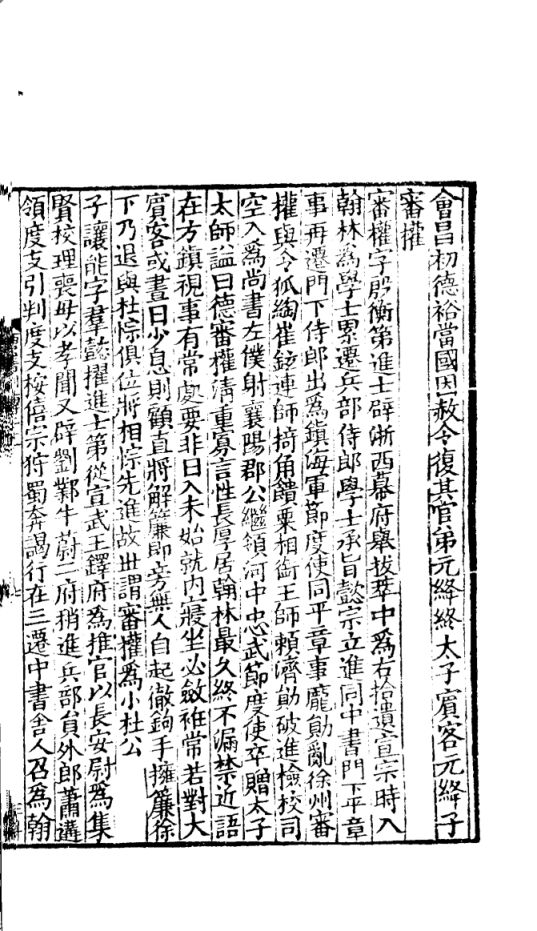 會昌初德裕當國因赦令復其官弟元絳終太子賓客元絳子
審權
審權字殷衡第進士辟浙西幕府舉拔萃中爲右拾遺宣宗時入
翰林爲學士累遷兵部侍郎學士承旨懿宗立進同中書門下平章
事再遷門下侍郎出爲鎮海軍節度使同平章事龐勛亂徐州審
權與令狐綯崔鉉連師掎角饋粟相銜王師賴濟勛破進檢校司
空入爲尚書左僕射襄陽郡公繼領河中忠武節度使卒贈太子
太師謚曰德審權清重寡言性長厚居翰林最久終不漏禁近語
在方鎮視事有常處要非日入未始就内寢坐必斂衽常若對大
賓客或晝日少息則顧直將解簾即旁無人自起徹鉤手擁簾徐
下乃退與杜悰俱位將相悰先進故世謂審權爲小杜公
子讓能字羣懿擢進士第從宣武王鐸府爲推官以長安尉爲集
賢校理喪母以孝聞又辟劉鄴牛蔚二府稍進兵部員外郎蕭遘
領度支引判度支桉僖宗狩蜀奔謁行在三遷中書舍人召爲翰